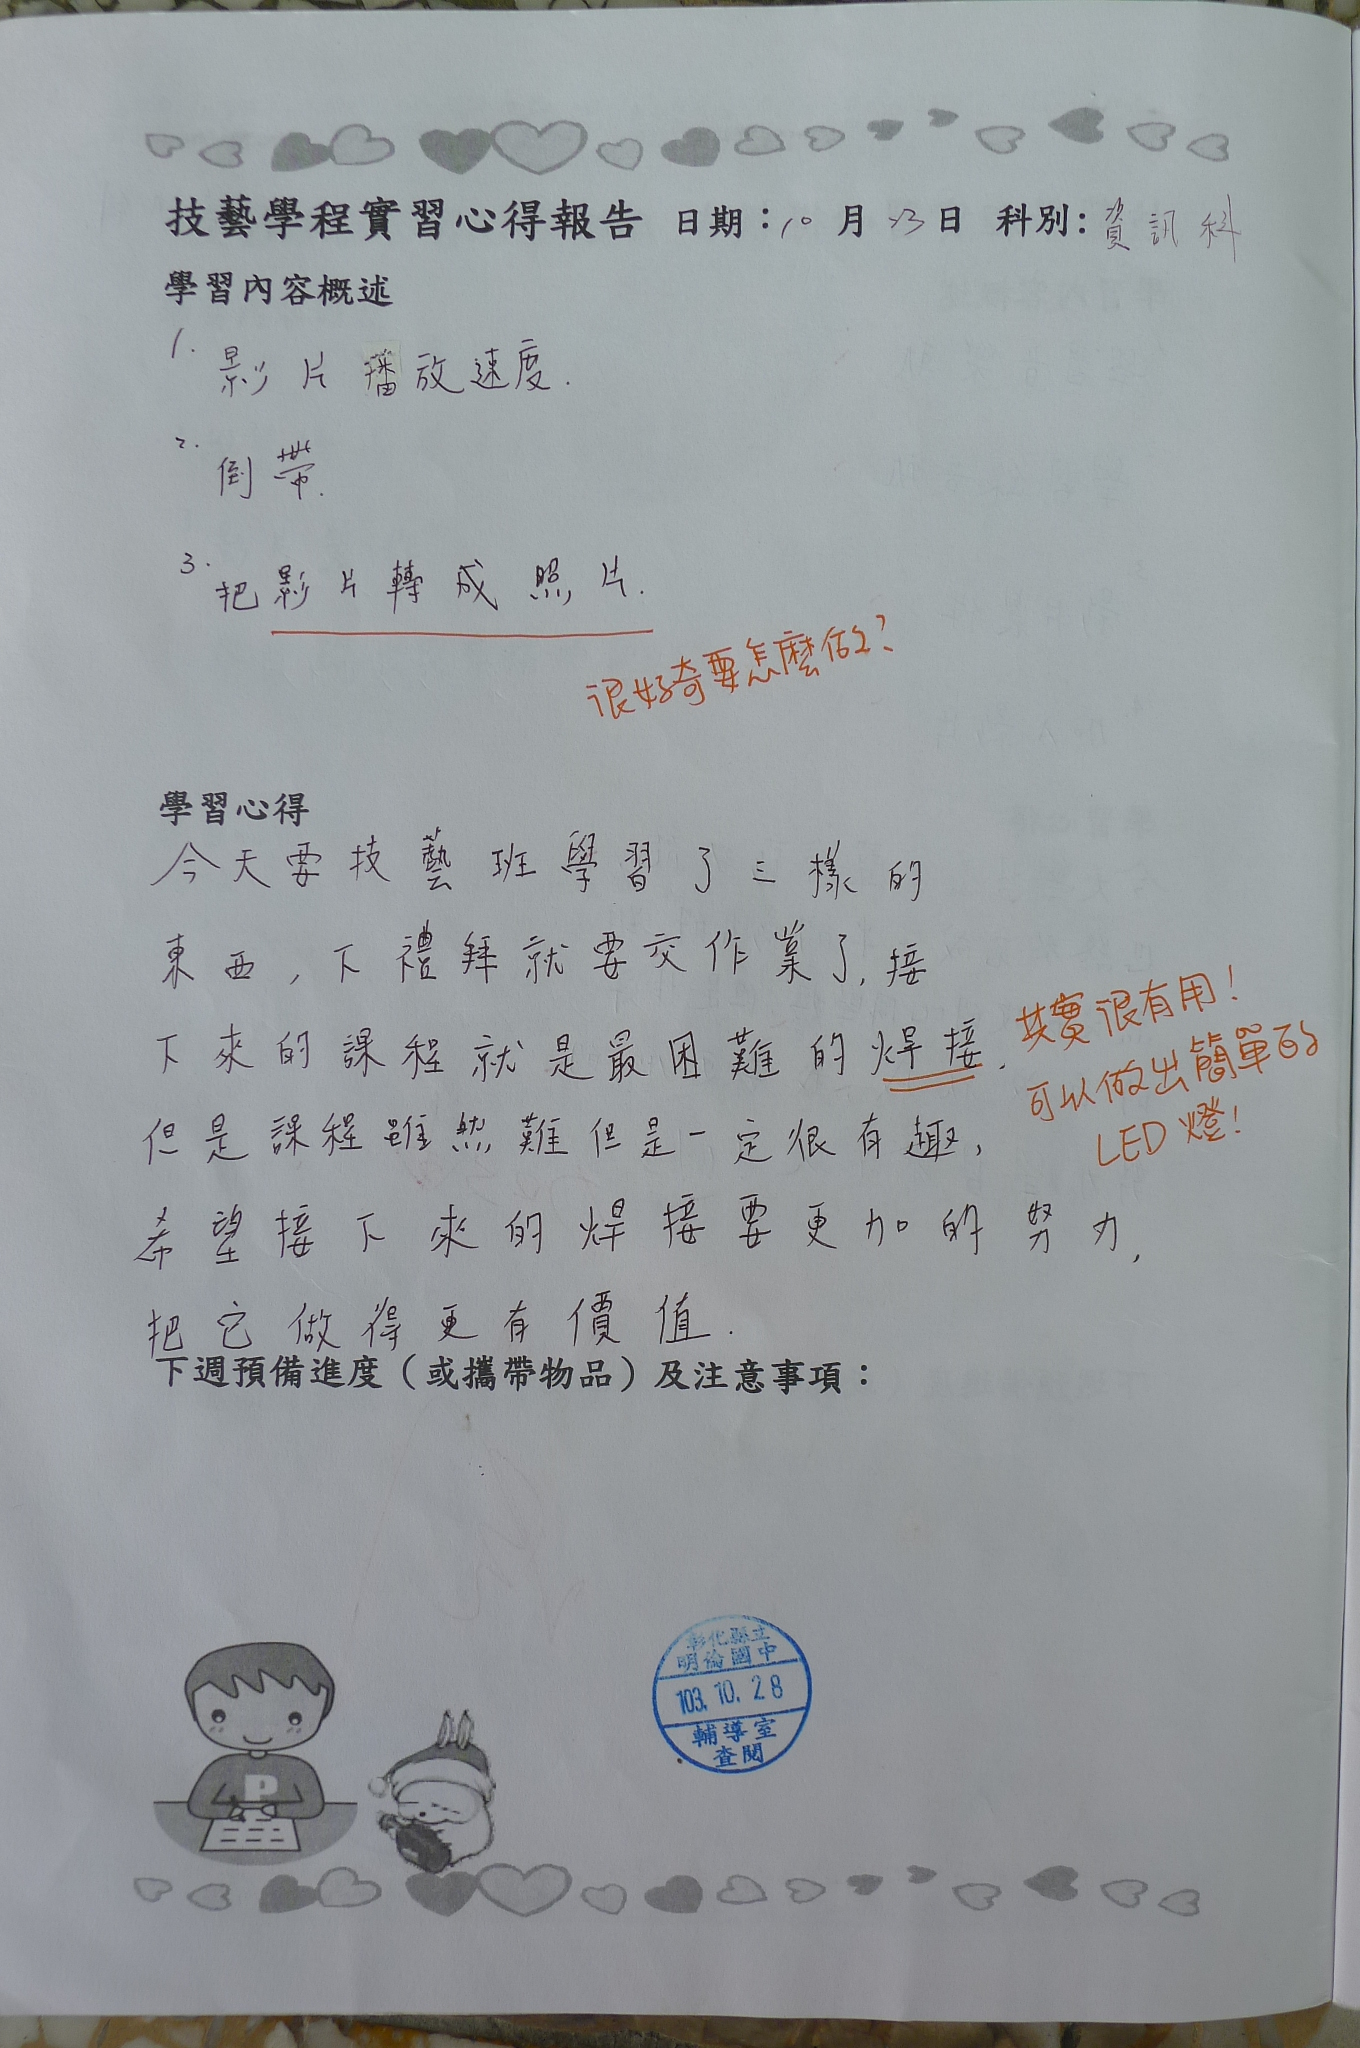 技藝學程實習心得報告 日期：10 月 23 日 科別：資訊科
學習內容概述
1. 影片播放速度.
2. 倒帶.
3. 把影片轉成照片.
很好奇要怎麼做?
學習心得
今天要技藝班學習了三樣的
東西，下禮拜就要交作業了，接
下來的課程就是最困難的焊接，
其實很有用！
可以做出簡單的
LED燈！
但是課程雖然難但是一定很有趣，
希望接下來的焊接要更加的努力，
把它做得更有價值.
下週預備進度（或攜帶物品）及注意事項：
彰化縣立
明倫國中
103.10.28
輔導室
查閱
P